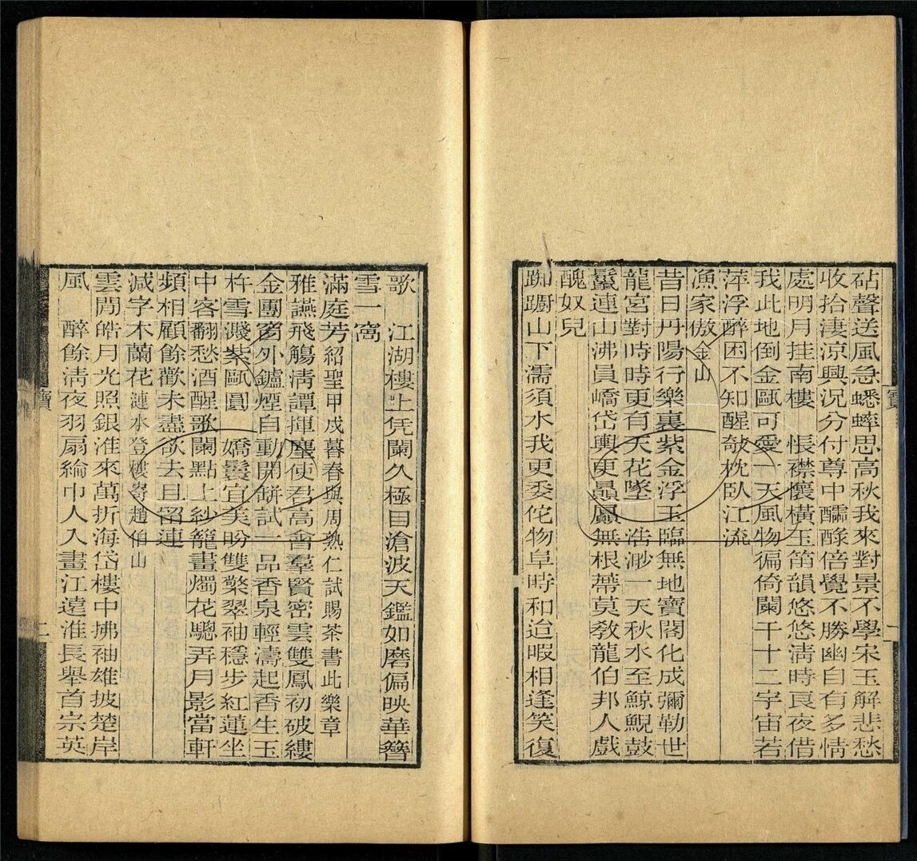 砧聲送風急蟋蟀思高秋我來對景不學宋玉解悲愁
收拾淒涼興況分付尊中醽醁倍覺不勝幽自有多情
處明月挂南樓　悵襟懷橫玉笛韻悠悠清時良夜借
我此地倒金甌可愛一天風物徧倚闌干十二宇宙若
萍浮醉困不知醒欹枕臥江流
漁家傲金山
昔日丹陽行樂裏紫金浮玉臨無地寶閣化成彌勒世
龍宮對時時更有天花墜　浩渺一天秋水至鯨鯢鼓
鬣連山沸員嶠岱輿更贔屭無根蔕莫敎龍伯邦人戲
醜奴兒
踟躕山下濡須水我更委佗物阜時和迨暇相逢笑復
寶
一
歌　江湖樓上凭闌久極目滄波天鑑如磨偏映華簪
雪一窩
滿庭芳紹聖甲戌暮春與周熟仁試賜茶書此樂章
雅讌飛觴清譚揮麈使君高會羣賢密雲雙鳳初破縷
金團窗外鑪煙自動開缾試一品香泉輕濤起香生玉
杵雪濺紫甌圓　嬌鬟宜美盼雙擎翠袖穩步紅蓮坐
中客翻愁酒醒歌闌點上紗籠畫燭花驄弄月影當軒
頻相顧餘歡未盡欲去且留連
減字木蘭花漣水登樓寄趙伯山
雲閒皓月光照銀淮來萬折海岱樓中拂袖雄披楚岸
風　醉餘淸夜羽扇綸巾人入畫江遠淮長舉首宗英
寶
二